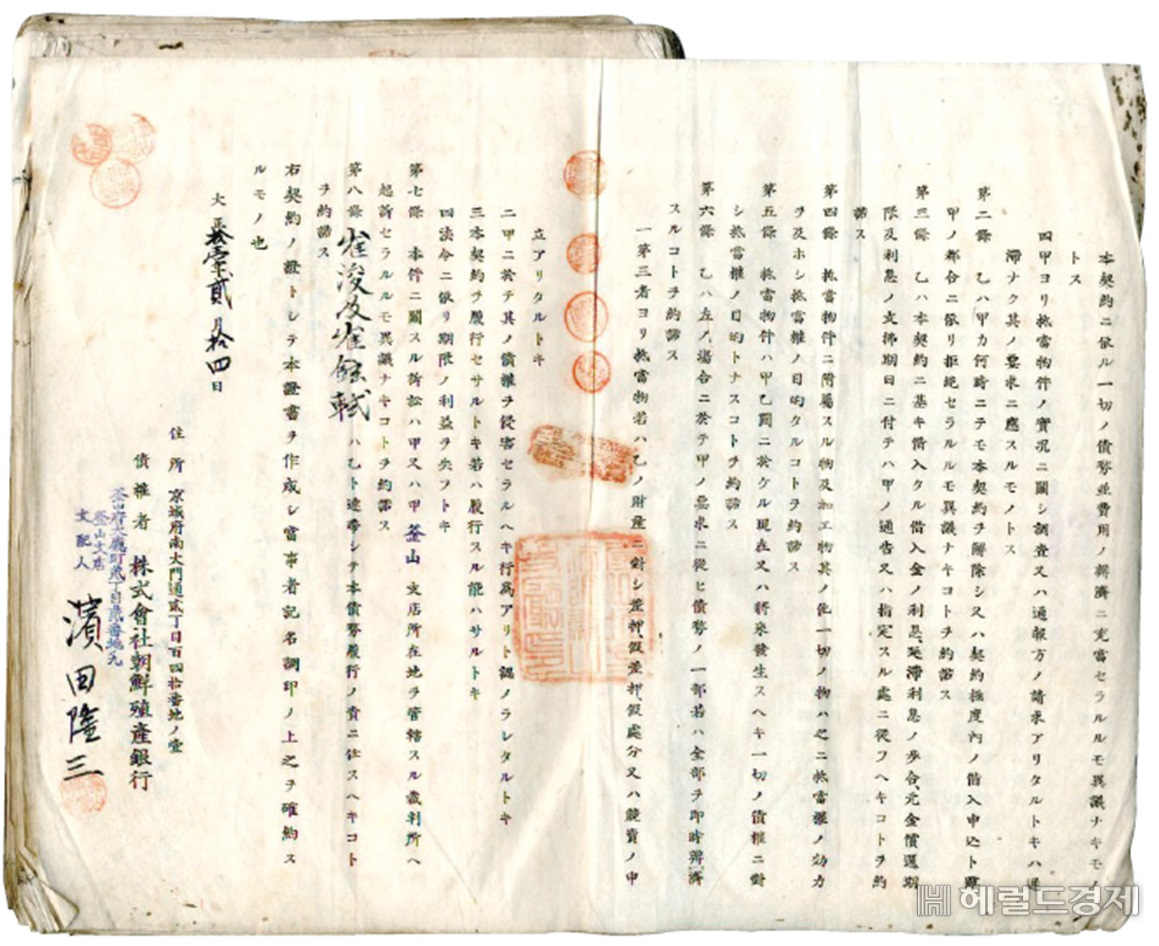 本契約ニ依ル一切ノ債務並費用ノ辨濟ニ充當セラルルモ異議ナキモノ
トス
四甲ヨリ抵當物件ノ實況ニ關シ調査又ハ通報方ノ請求アリタルトキハ遲
滯ナク其ノ要求ニ應スルモノトス
第二條 乙ハ甲カ何時ニテモ本契約ヲ解除シ又ハ契約極度內ノ借入申込ト雖
甲ノ都合ニ依リ拒絕セラルルモ異議ナキコトヲ約諾ス
第三條 乙ハ本契約ニ基キ借入タル借入金ノ利息、延滯利息ノ步合、元金償還期
限及利息ノ支拂期日ニ付テハ甲ノ通告又ハ指定スル處ニ從フヘキコトヲ約
諾ス
第四條 抵當物件ニ附屬スル物及加工物其ノ他一切ノ物ハ之ニ抵當權ノ効力
ヲ及ホシ抵當權ノ目的タルコトヲ約諾ス
第五條 抵當物件ハ甲乙間ニ於ケル現在又ハ將來發生スヘキ一切ノ債權ニ對
シ抵當權ノ目的トナスコトヲ約諾ス
第六條 乙ハ左ノ場合ニ於テ甲ノ要求ニ從ヒ債務ノ一部若ハ全部ヲ卽時辨濟
スルコトヲ約諾ス
一第三者ヨリ抵當物若ハ乙ノ財產ニ對シ差押、假差押、假處分又ハ競賣ノ申
立アリタルトキ
二甲ニ於テ其ノ債權ヲ侵害セラルヘキ行爲アリト認メラレタルトキ
三本契約ヲ履行セサルトキ若ハ履行スル能ハサルトキ
四法令ニ依リ期限ノ利益ヲ失フトキ
第七條 本件ニ關スル訴訟ハ甲又ハ甲 釜山 支店所在地ヲ管轄スル裁判所ヘ
起訴セラルルモ異議ナキコトヲ約諾ス
第八條 崔浚及崔鉉軾 ハ乙ト連帶シテ本債務履行ノ責ニ任スヘキコト
ヲ約諾ス
右契約ノ證トシテ本證書ヲ作成シ當事者記名調印ノ上之ヲ確約ス
ルモノ也
大正拾壹年貳月拾四日
住所 京城府南大門通貳丁目百四拾番地ノ壹
債權者 株式會社朝鮮殖產銀行
釜山支店
支配人 濱田隆三
헤럴드경제